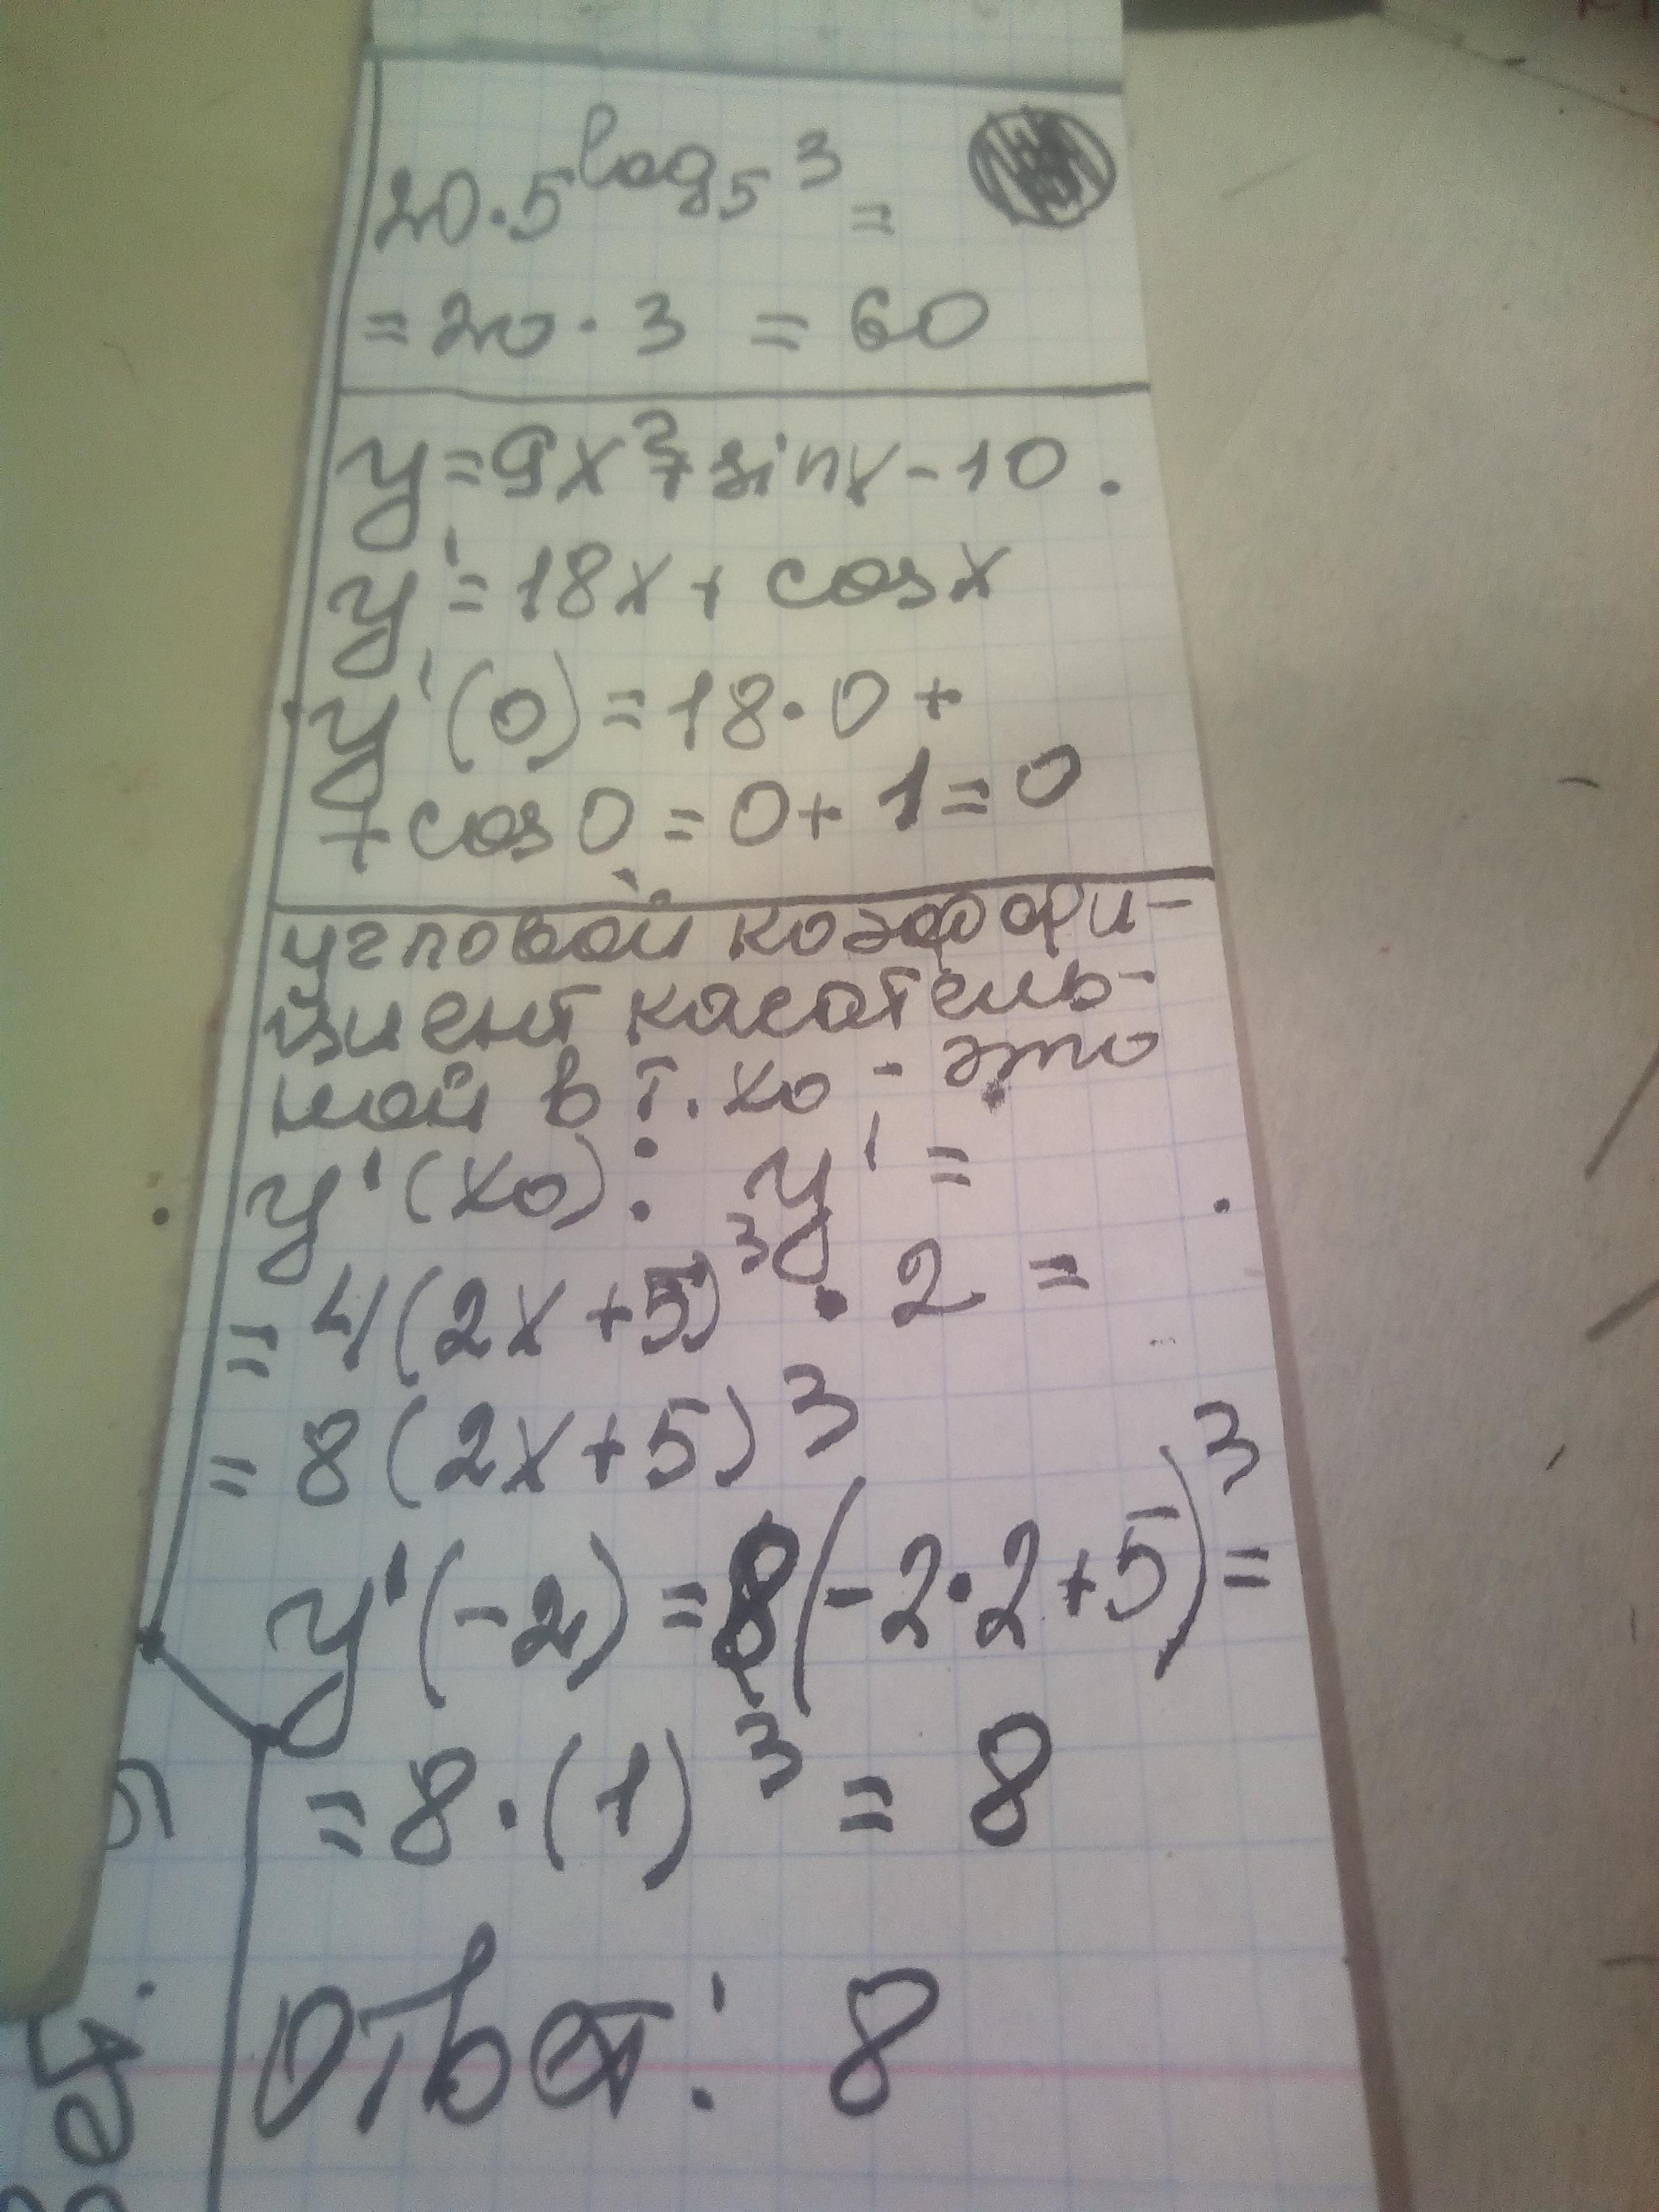 20·5^log₅3 =
= 20 · 3 = 60
y = 9x² + sinx - 10 .
y' = 18x + cosx
y'(0) = 18·0 +
+ cos0 = 0 + 1 = 0
угловой коэффи-
циент касатель-
ной в т. x0 - это
y'(x0): y' =
= 4(2x+5)³ · 2 =
= 8(2x+5)³
y'(-2) = 8(-2·2+5)³ =
= 8·(1)³ = 8
Ответ: 8